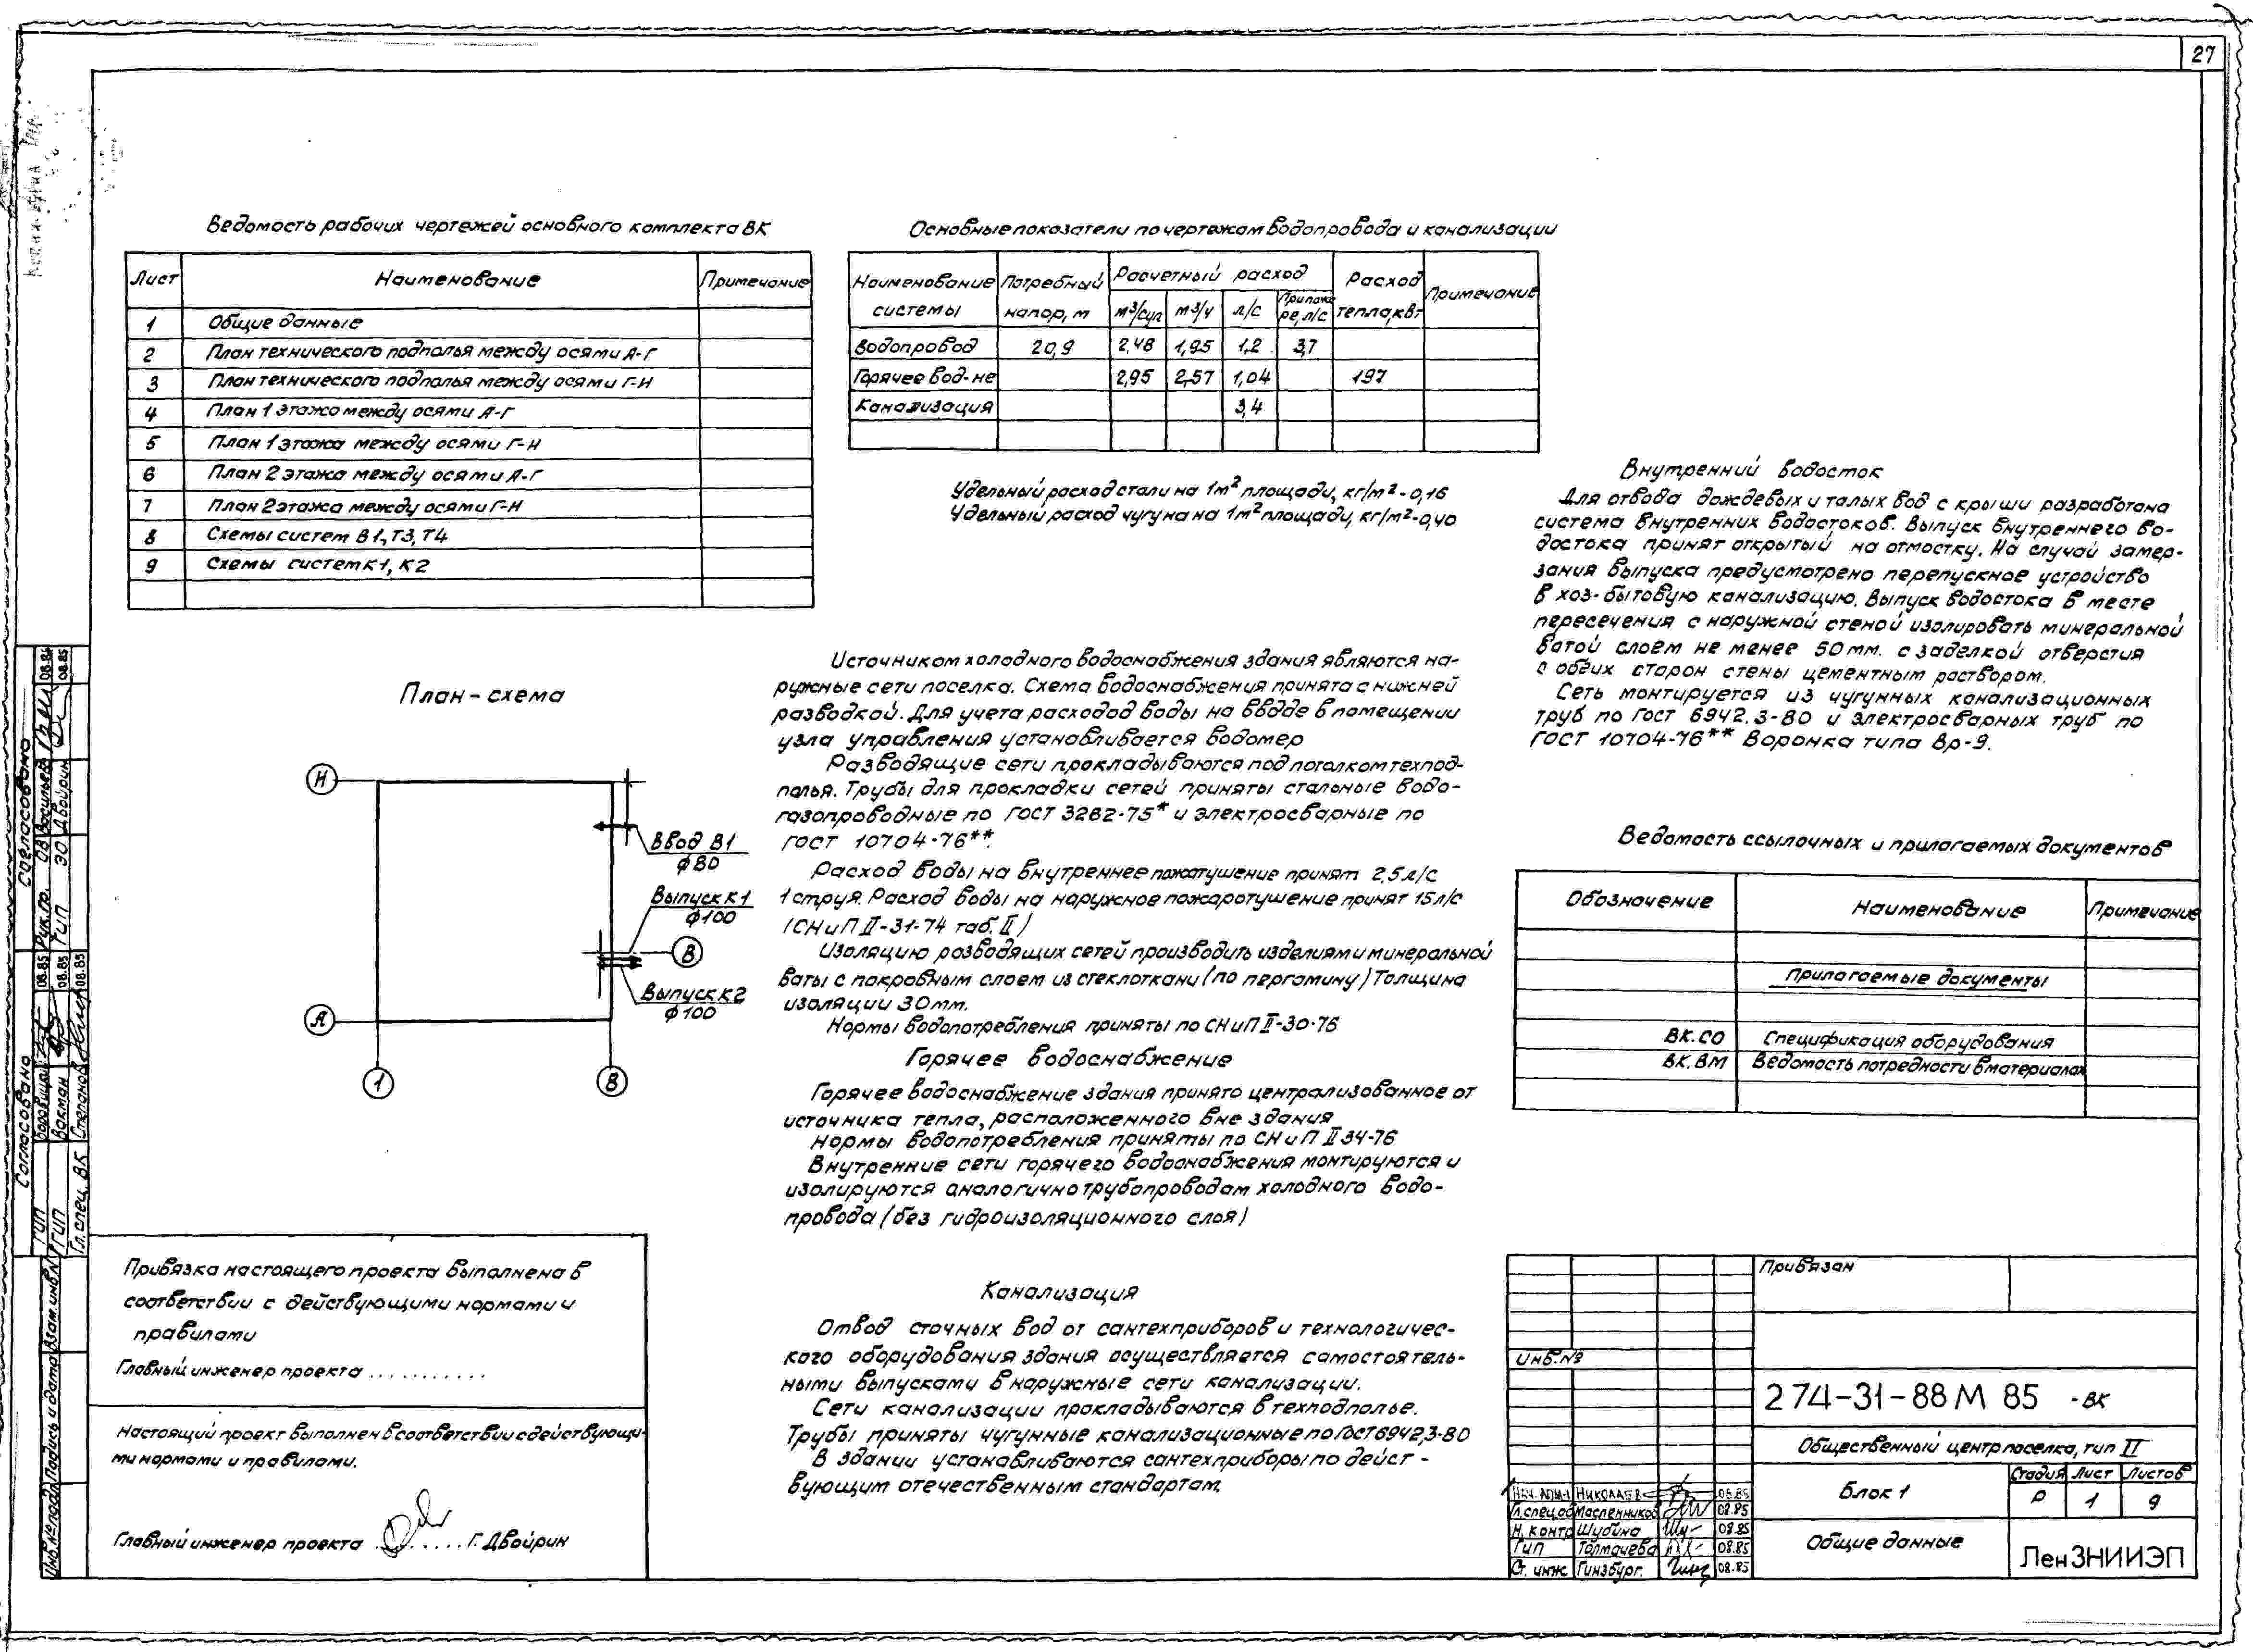 27
Ведомость рабочих чертежей основного комплекта ВК
Лист Наименование Примечание
1 Общие данные
2 План технического подполья между осями А-Г
3 План технического подполья между осями Г-Н
4 План 1 этажа между осями А-Г
5 План 1 этажа между осями Г-Н
6 План 2 этажа между осями А-Г
7 План 2 этажа между осями Г-Н
8 Схемы систем В1, Т3, Т4
9 Схемы систем К1, К2
Основные показатели по чертежам водопровода и канализации
Наименование системы Потребный напор, м Расчетный расход Расход тепла, квт Примечание
м³/сут м³/ч л/с При пожаре, л/с
Водопровод 20,9 2,48 1,95 1,2 3,7
Горячее вод-не 2,95 2,57 1,04 197
Канализация 3,4
Удельный расход стали на 1м² площади, кг/м²-0,16
Удельный расход чугуна на 1м² площади, кг/м²-0,40
План-схема
Н
А
1
В
В
Ввод В1
ф80
Выпуск К1
ф100
Выпуск К2
ф100
Источником холодного водоснабжения здания являются на-
ружные сети поселка. Схема водоснабжения принята с нижней
разводкой. Для учета расходов воды на вводе в помещении
узла управления устанавливается водомер
Разводящие сети прокладываются под потолком техпод-
полья. Трубы для прокладки сетей приняты стальные водо-
газопроводные по ГОСТ 3262-75* и электросварные по
ГОСТ 10704-76**.
Расход воды на внутреннее пожатушение принят 2,5л/с
1 струя. Расход воды на наружное пожаротушение принят 15л/с
(СНиП II-31-74 таб. II)
Изоляцию разводящих сетей производить изделиями минеральной
ваты с покровным слоем из стеклоткани (по пергамину) Толщина
изоляции 30мм.
Нормы водопотребления приняты по СНиП II-30-76
Горячее водоснабжение
Горячее водоснабжение здания принято централизованное от
источника тепла, расположенного вне здания
Нормы водопотребления приняты по СНиП II 34-76
Внутренние сети горячего водоснабжения монтируются и
изолируются аналогично трубопроводам холодного водо-
провода (без гидроизоляционного слоя)
Канализация
Отвод сточных вод от сантехприборов и технологичес-
кого оборудования здания осуществляется самостоятель-
ными выпусками в наружные сети канализации.
Сети канализации прокладываются в техподполье.
Трубы приняты чугунные канализационные по ГОСТ 6942,3-80
В здании устанавливаются сантехприборы по дейст-
вующим отечественным стандартам.
Внутренний водосток
Для отвода дождевых и талых вод с крыши разработана
система внутренних водостоков. Выпуск внутреннего во-
достока принят открытый на отмостку. На случай замер-
зания выпуска предусмотрено перепускное устройство
в хоз-бытовую канализацию. Выпуск водостока в месте
пересечения с наружной стеной изолировать минеральной
ватой слоем не менее 50мм. с заделкой отверстия
с обеих сторон стены цементным раствором.
Сеть монтируется из чугунных канализационных
труб по ГОСТ 6942.3-80 и электросварных труб по
ГОСТ 10704-76** Воронка типа Вр-9.
Ведомость ссылочных и прилагаемых документов
Обозначение Наименование Примечание
Прилагаемые документы
ВК.СО Спецификация оборудования
ВК.ВМ Ведомость потребности в материалах
Привязка настоящего проекта выполнена в
соответствии с действующими нормами и
правилами
Главный инженер проекта ...........
Настоящий проект выполнен в соответствии с действующи-
ми нормами и правилами.
Главный инженер проекта ........ Г. Двойрин
Согласовано
Рук.гр. ОВ Васильев 08.85
ГИП ЭО Двойрин 08.85
Согласовано
ГИП 08.85
ГИП Вакман 08.85
Гл.спец. ВК Степанов 08.85
Инв.№подл Подпись и дата Взам.инв.№
Привязан
Инв.№
274-31-88М 85 -ВК
Общественный центр поселка, тип II
Блок 1
Стадия Лист Листов
Р 1 9
Общие данные
ЛенЗНИИЭП
Нач. АПМ-1 Николаев 08.85
Гл.спец.об Масленников 08.85
Н. контр Шубина 08.85
Гип Толмачева 08.85
Ст. инж Гинзбург. 08.85